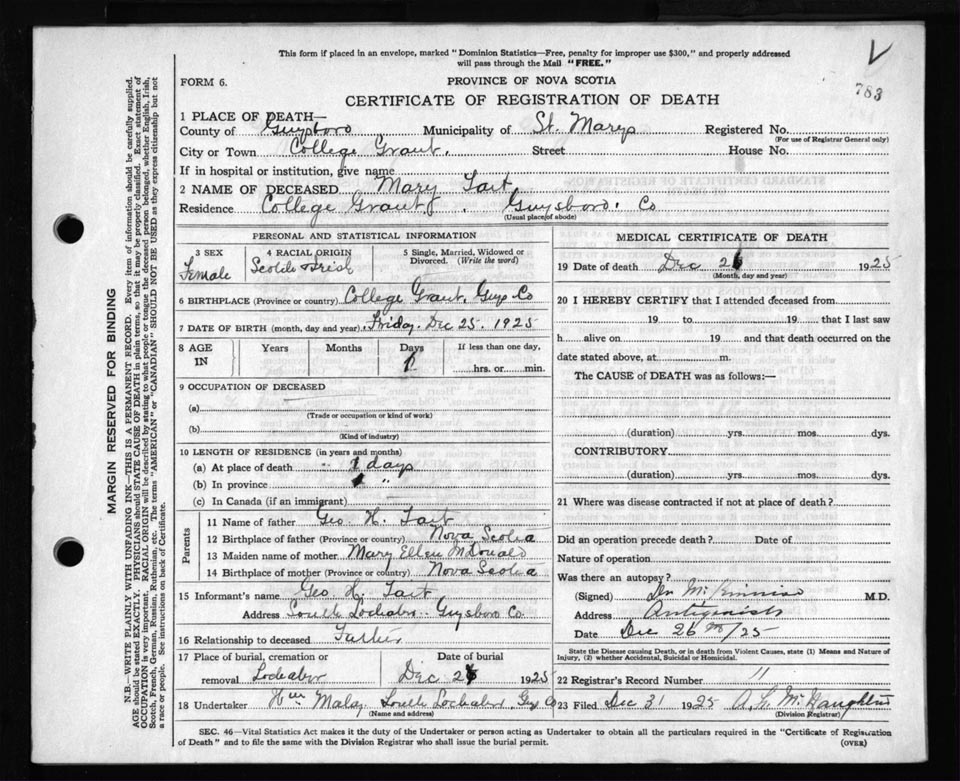 This form if placed in an envelope, marked "Dominion Statistics—Free, penalty for improper use $300," and properly addressed
will pass through the Mail "FREE."
V
783
FORM 6.
PROVINCE OF NOVA SCOTIA
CERTIFICATE OF REGISTRATION OF DEATH
1 PLACE OF DEATH—
County of Guysboro Municipality of St. Marys Registered No.
(For use of Registrar General only)
City or Town College Grant. Street House No.
If in hospital or institution, give name
2 NAME OF DECEASED Mary Tait
Residence College Grant, Guysboro. Co
(Usual place of abode)
PERSONAL AND STATISTICAL INFORMATION
3 SEX
Female
4 RACIAL ORIGIN
Scotch Irish
5 Single, Married, Widowed or
Divorced. (Write the word)
6 BIRTHPLACE (Province or country) College Grant Guys Co
7 DATE OF BIRTH (month, day and year) Friday. Dec 25. 1925
8 AGE
IN
Years
Months
Days
1
If less than one day,
hrs. or min.
9 OCCUPATION OF DECEASED
(a)
(Trade or occupation or kind of work)
(b)
(Kind of industry)
10 LENGTH OF RESIDENCE (in years and months)
(a) At place of death 1 days
(b) In province 1 "
(c) In Canada (if an immigrant)
Parents
11 Name of father Geo. H. Tait
12 Birthplace of father (Province or country) Nova Scotia
13 Maiden name of mother Mary Ellen McDonald
14 Birthplace of mother (Province or country) Nova Scotia
15 Informant's name Geo. H. Tait
Address South Lochaber Guysboro Co.
16 Relationship to deceased Father
17 Place of burial, cremation or
removal Lochaber
Date of burial
Dec 26 1925
18 Undertaker South Lochaber Guys Co
(Name and address)
MEDICAL CERTIFICATE OF DEATH
19 Date of death Dec 26 1925
(Month, day and year)
20 I HEREBY CERTIFY that I attended deceased from
19 to 19 that I last saw
h alive on 19 and that death occurred on the
date stated above, at m.
The CAUSE of DEATH was as follows:—
(duration) yrs. mos. dys.
CONTRIBUTORY
(duration) yrs. mos. dys.
21 Where was disease contracted if not at place of death?
Did an operation precede death? Date of
Nature of operation
Was there an autopsy?
(Signed) M.D.
Address Antigonish
Date Dec 26th/25
State the Disease causing Death, or in death from Violent Causes, state (1) Means and Nature of
Injury, (2) whether Accidental, Suicidal or Homicidal.
22 Registrar's Record Number 11
23 Filed Dec 31 1925
(Division Registrar)
SEC. 46—Vital Statistics Act makes it the duty of the Undertaker or person acting as Undertaker to obtain all the particulars required in the "Certificate of Registration
of Death" and to file the same with the Division Registrar who shall issue the burial permit. (OVER)
MARGIN RESERVED FOR BINDING
N.B.—WRITE PLAINLY WITH UNFADING INK—THIS IS A PERMANENT RECORD. Every item of information should be carefully supplied.
AGE should be stated EXACTLY. PHYSICIANS should STATE CAUSE OF DEATH in plain terms, so that it may be properly classified. Exact statement of
OCCUPATION is very important. RACIAL ORIGIN will be described by stating to what people or tongue the deceased person belonged, whether English, Irish,
Scotch, French, German, Russian, Ruthenian, etc. The terms "AMERICAN" or "CANADIAN" SHOULD NOT BE USED as they express citizenship but not
a race or people. See instructions on back of Certificate.